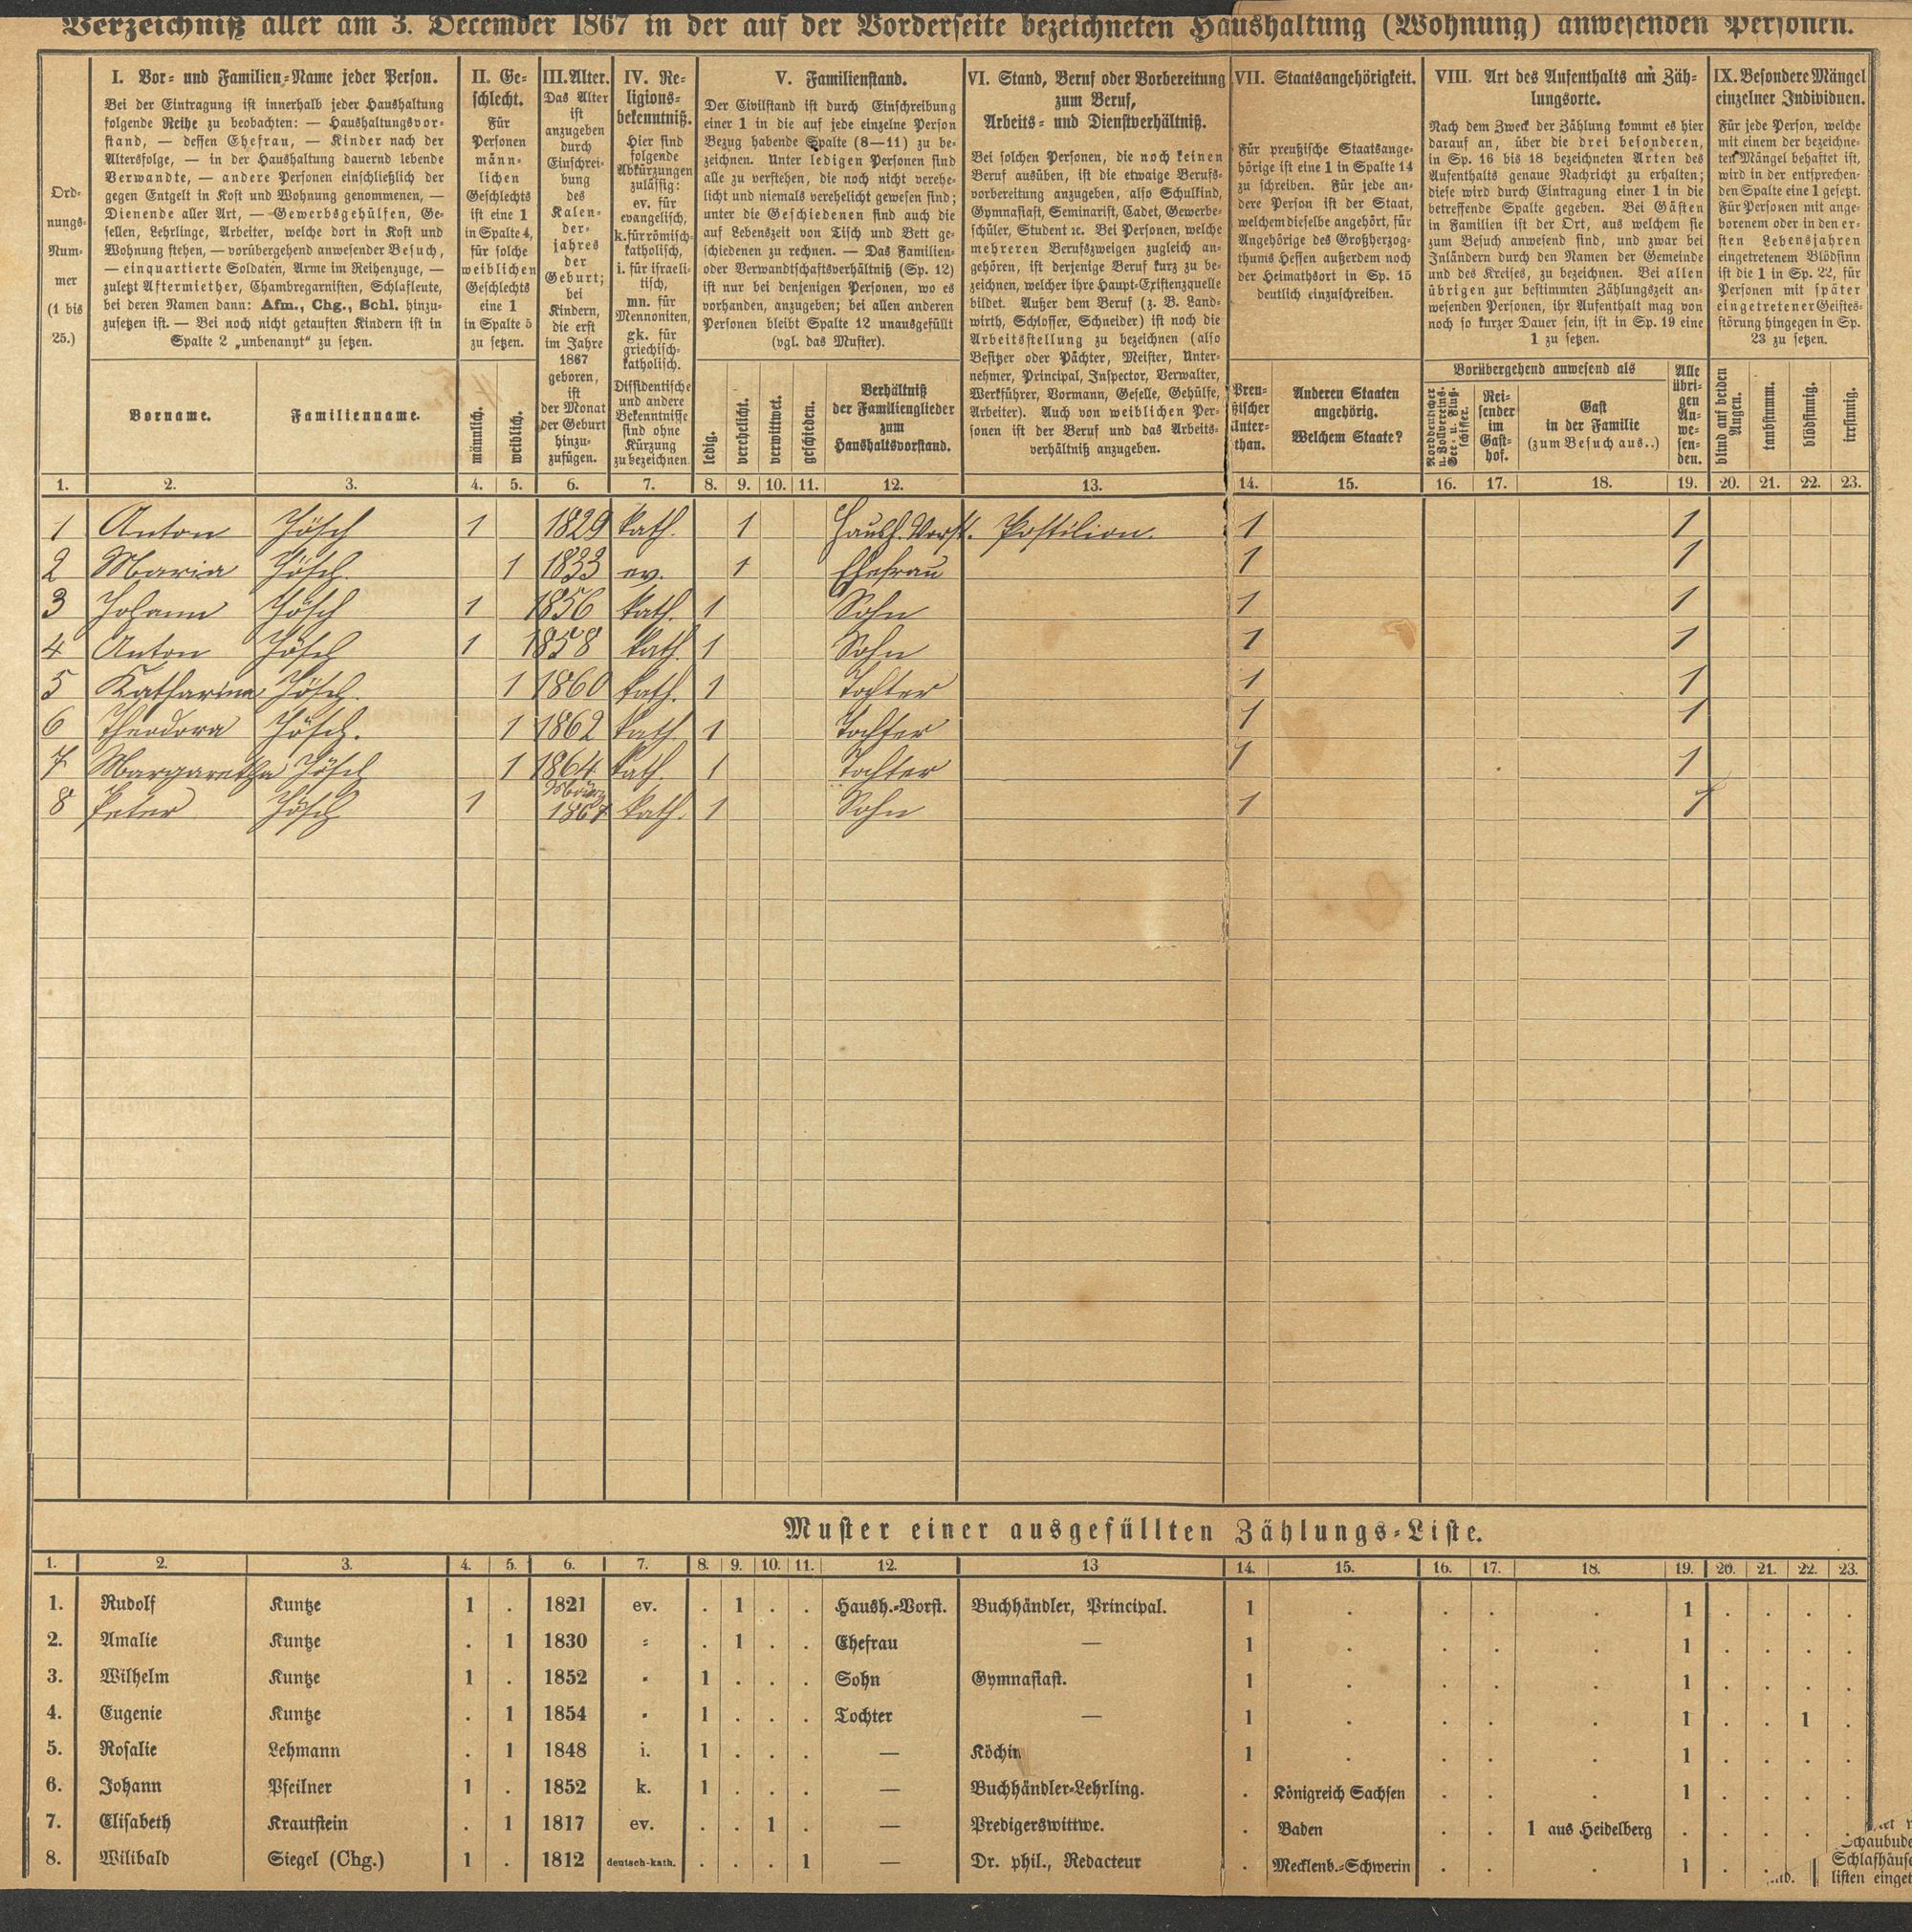 Verzeichniß aller am 3. December 1867 in der auf der Vorderseite bezeichneten Haushaltung (Wohnung) anwesenden Personen.
Ord-
nungs-
Num-
mer
(1 bis
25.)
I. Vor- und Familien-Name jeder Person.
Bei der Eintragung ist innerhalb jeder Haushaltung
folgende Reihe zu beobachten: — Haushaltungsvor-
stand, — dessen Ehefrau, — Kinder nach der
Altersfolge, — in der Haushaltung dauernd lebende
Verwandte, — andere Personen einschließlich der
gegen Entgelt in Kost und Wohnung genommenen, —
Dienende aller Art, — Gewerbsgehülfen, Ge-
sellen, Lehrlinge, Arbeiter, welche dort in Kost und
Wohnung stehen, — vorübergehend anwesender Besuch,
— einquartierte Soldaten, Arme im Reihenzuge, —
zuletzt Aftermiether, Chambregarnisten, Schlafleute,
bei deren Namen dann: Afm., Chg., Schl. hinzu-
zusetzen ist. — Bei noch nicht getauften Kindern ist in
Spalte 2 „unbenannt“ zu setzen.
Vorname.
Familienname.
II. Ge-
schlecht.
Für
Personen
männ-
lichen
Geschlechts
ist eine 1
in Spalte 4,
für solche
weiblichen
Geschlechts
eine 1
in Spalte 5
zu setzen.
männlich.
weiblich.
III. Alter.
Das Alter
ist
anzugeben
durch
Einschrei-
bung
des
Kalen-
der-
jahres
der
Geburt;
bei
Kindern,
die erst
im Jahre
1867
geboren,
ist
der Monat
der Geburt
hinzu-
zufügen.
IV. Re-
ligions-
bekenntniß.
Hier sind
folgende
Abkürzungen
zulässig:
ev. für
evangelisch,
k. für römisch-
katholisch,
i. für israeli-
tisch,
mn. für
Mennoniten,
gk. für
griechisch-
katholisch.
Dissidentische
und andere
Bekenntnisse
sind ohne
Kürzung
zu bezeichnen.
V. Familienstand.
Der Civilstand ist durch Einschreibung
einer 1 in die auf jede einzelne Person
Bezug habende Spalte (8—11) zu be-
zeichnen. Unter ledigen Personen sind
alle zu verstehen, die noch nicht verehe-
licht und niemals verehelicht gewesen sind;
unter die Geschiedenen sind auch die
auf Lebenszeit von Tisch und Bett ge-
schiedenen zu rechnen. — Das Familien-
oder Verwandtschaftsverhältniß (Sp. 12)
ist nur bei denjenigen Personen, wo es
vorhanden, anzugeben; bei allen anderen
Personen bleibt Spalte 12 unausgefüllt
(vgl. das Muster).
ledig.
verehelicht.
verwittwet.
geschieden.
Verhältniß
der Familienglieder
zum
Haushaltsvorstand.
VI. Stand, Beruf oder Vorbereitung
zum Beruf,
Arbeits- und Dienstverhältniß.
Bei solchen Personen, die noch keinen
Beruf ausüben, ist die etwaige Berufs-
vorbereitung anzugeben, also Schulkind,
Gymnasiast, Seminarist, Cadet, Gewerbe-
schüler, Student ꝛc. Bei Personen, welche
mehreren Berufszweigen zugleich an-
gehören, ist derjenige Beruf kurz zu be-
zeichnen, welcher ihre Haupt-Existenzquelle
bildet. Außer dem Beruf (z. B. Land-
wirth, Schlosser, Schneider) ist noch die
Arbeitsstellung zu bezeichnen (also
Besitzer oder Pächter, Meister, Unter-
nehmer, Principal, Inspector, Verwalter,
Werkführer, Vormann, Geselle, Gehülfe,
Arbeiter). Auch von weiblichen Per-
sonen ist der Beruf und das Arbeits-
verhältniß anzugeben.
VII. Staatsangehörigkeit.
Für preußische Staatsange-
hörige ist eine 1 in Spalte 14
zu schreiben. Für jede an-
dere Person ist der Staat,
welchem dieselbe angehört, für
Angehörige des Großherzog-
thums Hessen außerdem noch
der Heimathsort in Sp. 15
deutlich einzuschreiben.
Preu-
ßischer
Unter-
than.
Anderen Staaten
angehörig.
Welchem Staate?
VIII. Art des Aufenthalts am Zäh-
lungsorte.
Nach dem Zweck der Zählung kommt es hier
darauf an, über die drei besonderen,
in Sp. 16 bis 18 bezeichneten Arten des
Aufenthalts genaue Nachricht zu erhalten;
diese wird durch Eintragung einer 1 in die
betreffende Spalte gegeben. Bei Gästen
in Familien ist der Ort, aus welchem sie
zum Besuch anwesend sind, und zwar bei
Inländern durch den Namen der Gemeinde
und des Kreises, zu bezeichnen. Bei allen
übrigen zur bestimmten Zählungszeit an-
wesenden Personen, ihr Aufenthalt mag von
noch so kurzer Dauer sein, ist in Sp. 19 eine
1 zu setzen.
Vorübergehend anwesend als
Norddeutscher
u. Zollvereins-
See- u. Fluß-
schiffer.
Rei-
sender
im
Gast-
hof.
Gast
in der Familie
(zum Besuch aus..)
Alle
übri-
gen
An-
we-
sen-
den.
IX. Besondere Mängel
einzelner Individuen.
Für jede Person, welche
mit einem der bezeichne-
ten Mängel behaftet ist,
wird in der entsprechen-
den Spalte eine 1 gesetzt.
Für Personen mit ange-
borenem oder in den er-
sten Lebensjahren
eingetretenem Blödsinn
ist die 1 in Sp. 22, für
Personen mit später
eingetretener Geistes-
störung hingegen in Sp.
23 zu setzen.
blind auf beiden
Augen.
taubstumm.
blödsinnig.
irrsinnig.
1. 2. 3. 4. 5. 6. 7. 8. 9. 10. 11. 12. 13. 14. 15. 16. 17. 18. 19. 20. 21. 22. 23.
1 Anton Hösch 1 1829 kath. 1 Haush. Vorst. Postilion. 1 1
2 Maria Hösch. 1 1833 ev. 1 Ehefrau 1 1
3 Johann Hösch 1 1856 kath. 1 Sohn 1 1
4 Anton Hösch 1 1858 kath. 1 Sohn 1 1
5 Katharina Hösch. 1 1860 kath. 1 Tochter 1 1
6 Theodora Hösch. 1 1862 kath. 1 Tochter 1 1
7 Margaretha Hösch 1 1864 kath. 1 Tochter 1 1
8 Peter Hösch 1 März 1867 kath. 1 Sohn 1 1
Muster einer ausgefüllten Zählungs-Liste.
1. 2. 3. 4. 5. 6. 7. 8. 9. 10. 11. 12. 13 14. 15. 16. 17. 18. 19. 20. 21. 22. 23.
1. Rudolf Kuntze 1 . 1821 ev. . 1 . . Haush.-Vorst. Buchhändler, Principal. 1 . . . . 1 . . . .
2. Amalie Kuntze . 1 1830 = . 1 . . Ehefrau — 1 . . . . 1 . . . .
3. Wilhelm Kuntze 1 . 1852 " 1 . . . Sohn Gymnasiast. 1 . . . . 1 . . . .
4. Eugenie Kuntze . 1 1854 " 1 . . . Tochter — 1 . . . . 1 . . 1 .
5. Rosalie Lehmann . 1 1848 i. 1 . . . — Köchin 1 . . . . 1 . . . .
6. Johann Pfeilner 1 . 1852 k. 1 . . . — Buchhändler-Lehrling. . Königreich Sachsen . . . 1 . . . .
7. Elisabeth Krautstein . 1 1817 ev. . . 1 . — Predigerswittwe. . Baden . . 1 aus Heidelberg . . . . .
8. Wilibald Siegel (Chg.) 1 . 1812 deutsch-kath. . . . 1 — Dr. phil., Redacteur . Mecklenb.-Schwerin . . . 1 . .
Schaubude
Schlafhäuse
listen einget